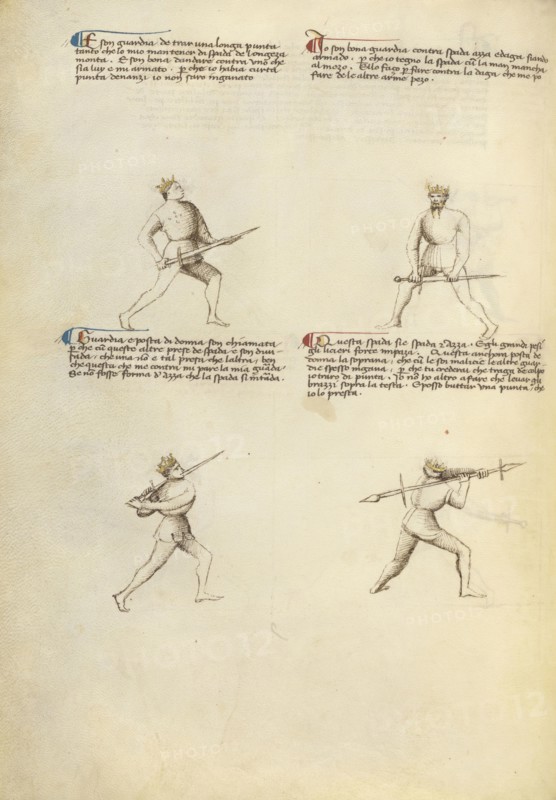 E son guardia de trar una longa punta
tanto che lo mio mantener di spada de longeza
monta. E son bona dandare contra uno che
sia lui e mi armato. p che io habia curta
punta denanzi io non saro inganato
Io son bona guardia contra spada azza e daga siando
armado. p che io tegno la spada cu la man mancha
al mezo. E lo faço p fare contra la daga che me po
fare de le altre arme pezo.
Guardia e posta di donna son chiamata
p che cu questo altre prese de spada e son divi
sada. che una no e tal presa che laltra. ben
che questa che me contra mi pare la mia guarda
Se no fosse forma d'azza che la spada si intada.
Questa spada sie spada e Azza. E gli grandi pesi
gli liçieri forte impaza. Questa anchora posta de
donna la soprana. che cu le soi malicie le altre guar
die spesso ingana. p che tu crederai che traga de colpo
io traro di punta. Io no ho altro a fare che levar gli
brazzi sopra la testa. E posso buttar una punta che
io lo presta.
PHOTO12